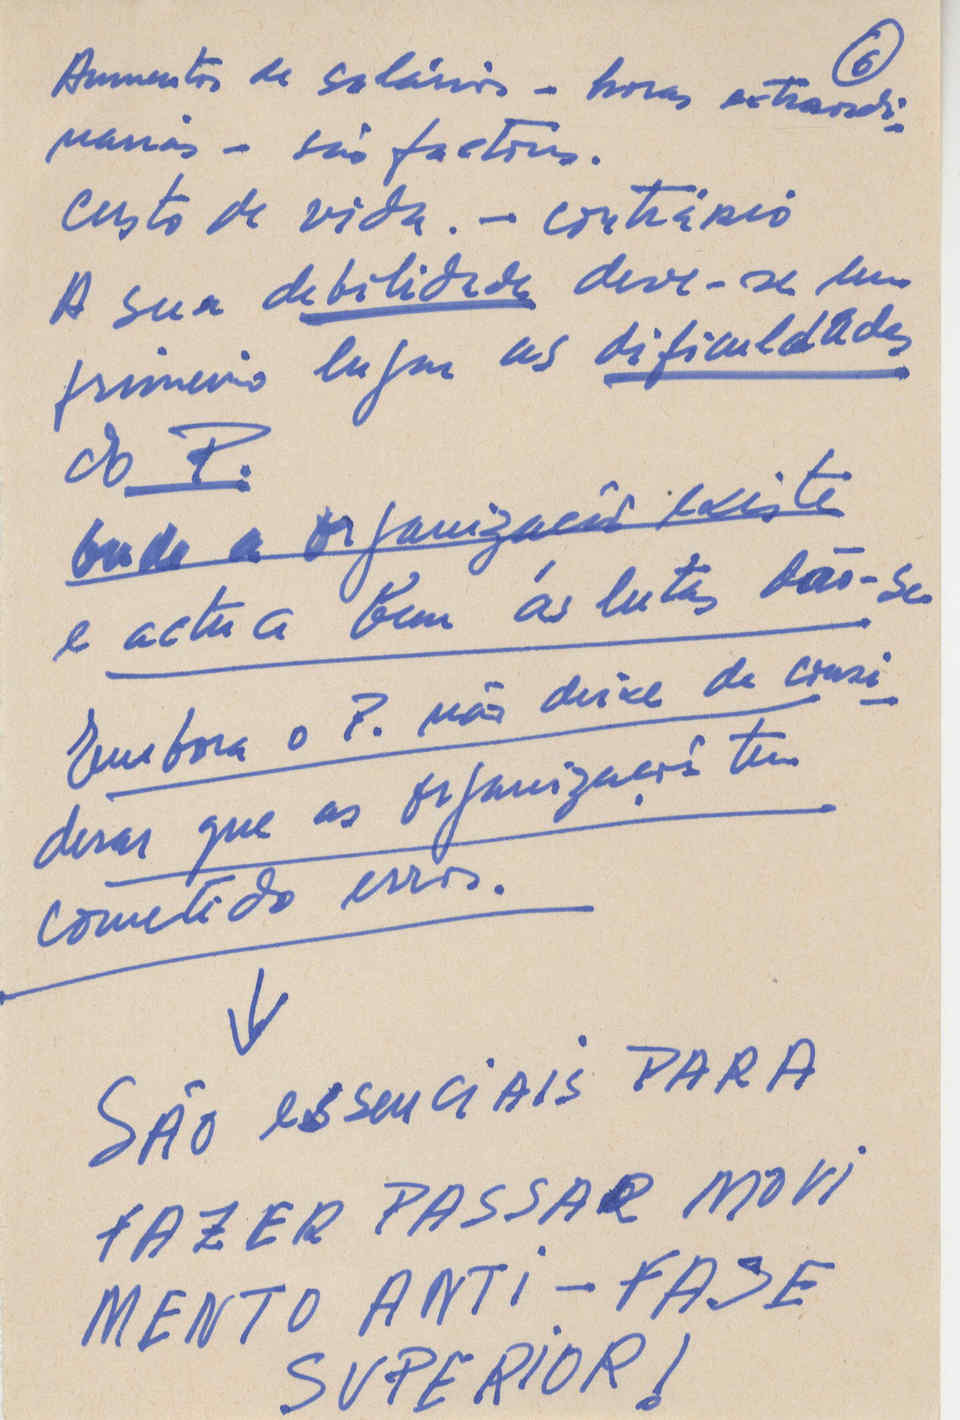 6
Aumentos de salários - horas extraordi-
narias - são factores.
Custo de vida. - contrário
A sua debilidade deve-se em
primeiro lugar às dificuldades
do P.
Onde a organização existe
e actua bem ás lutas dão-se
Embora o P. não deixe de consi-
derar que as organização tem
cometido erros.
↓
SÃO essenciais PARA
FAZER PASSAR MOVI
MENTO ANTI - FASE
SUPERIOR!